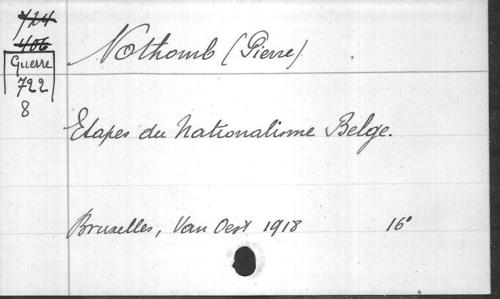 724
406
Guerre
722
8
Nothomb (Pierre)
Etapes du Nationalisme Belge.
Bruxelles, Van Oest 1918 16°